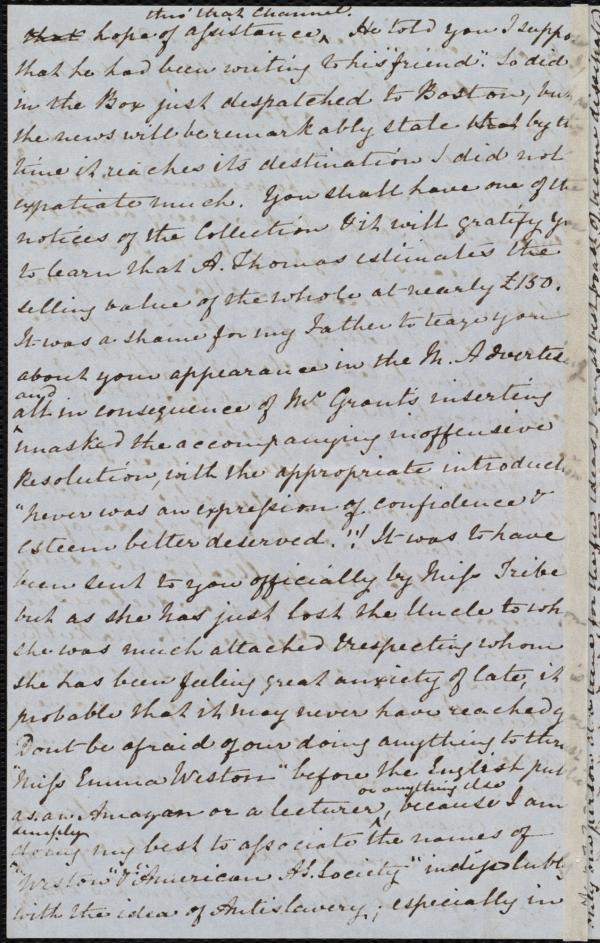 thro' that Channel.
that hope of assistance, He told you I suppo
that he had been writing to his "friend". So did
in the Box just despatched to Boston, but
the news will be remarkably stale by th
time it reaches its destination I did not
expatiate much. You shall have one of the
notices of the Collection & it will gratify yo
to learn that A. Thomas estimates the
selling value of the whole at nearly £150.
It was a shame for my Father to teaze you
about your appearance in the M. Advertis
and
all in consequence of Mr. Grant's inserting
unasked the accompanying inoffensive
Resolution, with the appropriate introduct
"never was an expression of confidence &
esteem better deserved."!! It was to have
been sent to you officially by Miss Tribe
but as she has just lost the Uncle to wh
she was much attached & respecting whom
she has been feeling great anxiety of late, it
probable that it may never have reached y
Dont be afraid of our doing anything to thru
"Miss Emma Weston" before the English pub
or anything else
as an Amazon or a lecturer, because I am
simply
doing my best to associate the names of
"Weston" & "American As. Society" indissolubly
with the idea of Antislavery; especially in